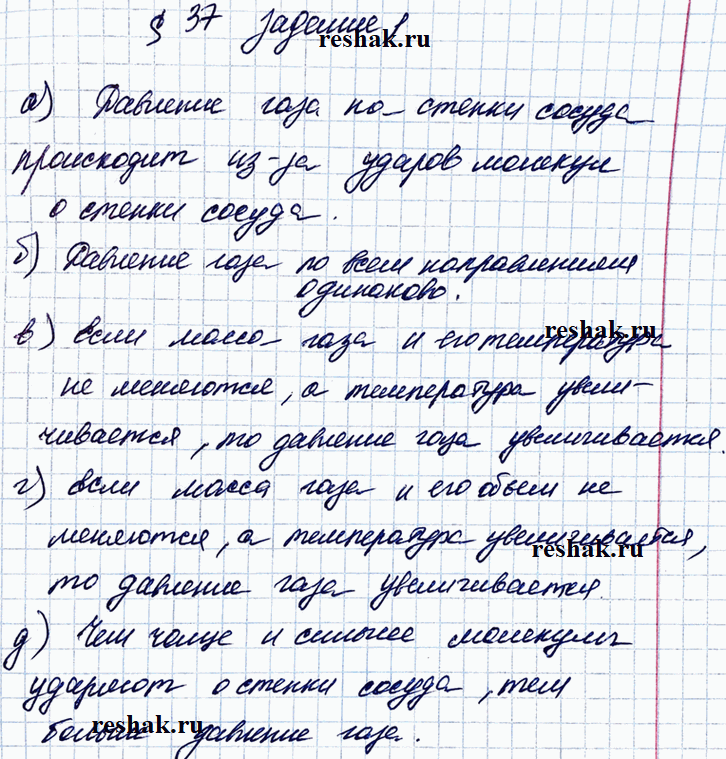 § 37 задание 1
reshak.ru
а) Давление газа на стенки сосуда
происходит из-за ударов молекул
о стенки сосуда.
б) Давление газа по всем направлениям
одинаково.
reshak.ru
в) если масса газа и его температура
не меняются, а температура увели-
чивается, то давление газа увеличивается.
г) если масса газа и его объем не
меняются, а температура увеличивается,
reshak.ru
то давление газа увеличивается.
д) Чем чаще и сильнее молекулы
ударяют о стенки сосуда, тем
reshak.ru
больше давление газа.